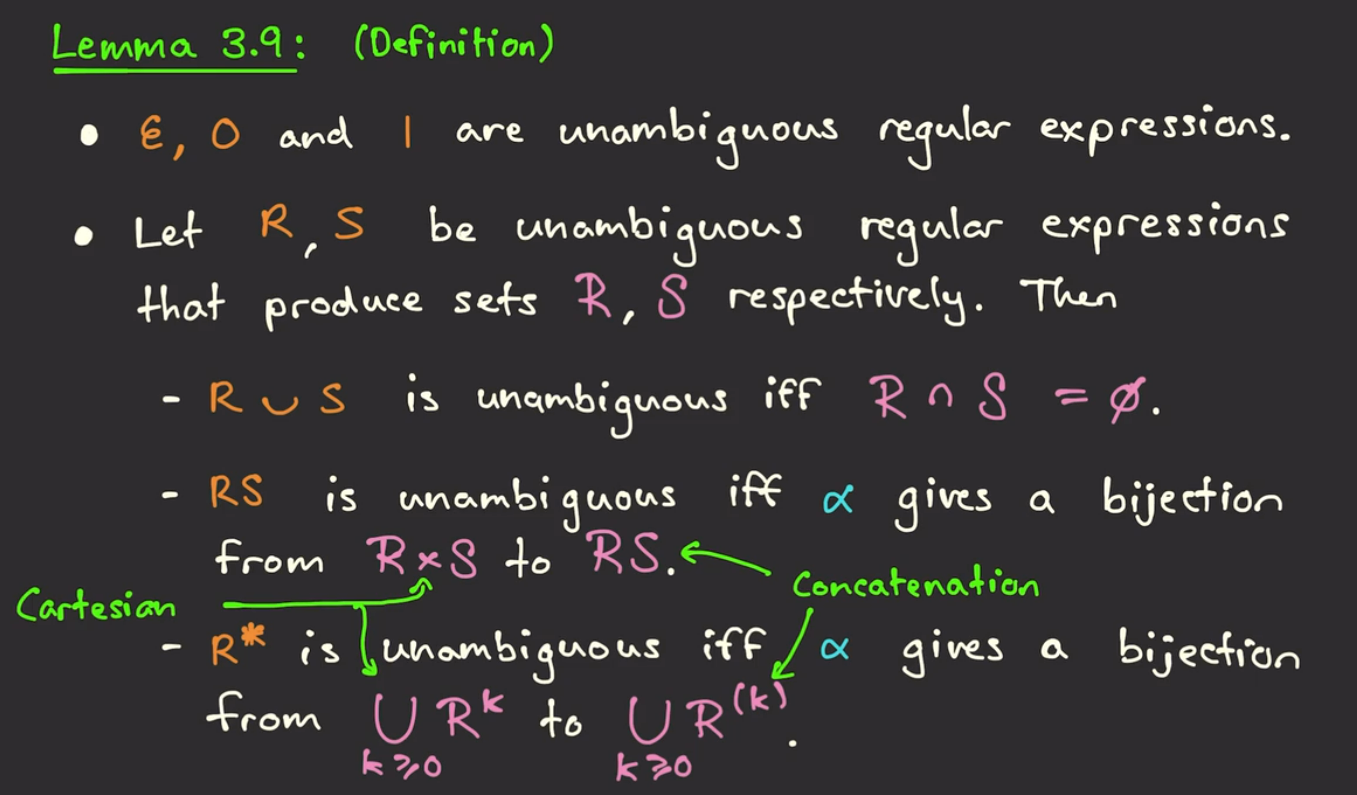 Lemma 3.9: (Definition)
• ε, 0 and 1 are unambiguous regular expressions.
• Let R, S be unambiguous regular expressions
that produce sets R, S respectively. Then
- R ∪ S is unambiguous iff R ∩ S = ∅.
- RS is unambiguous iff α gives a bijection
from R×S to RS.
Concatenation
Cartesian
- R* is unambiguous iff α gives a bijection
from ⋃ R^k to ⋃ R^(k).
k≥0 k≥0